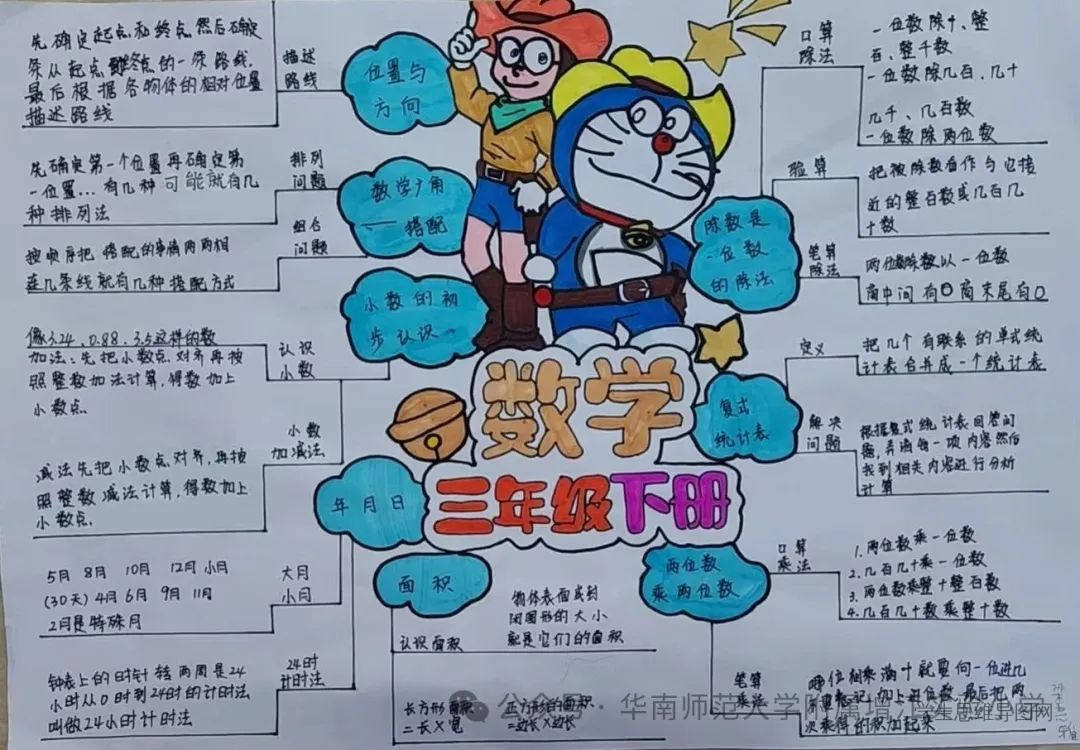 先确定起点和终点,然后确定
一条从起点到终点的一条路线,
最后根据各物体的相对位置
描述路线
描述
路线
位置与
方向
先确定第一个位置再确定第
一位置...有几种可能就有几
种排列法
排列
问题
数学广角
——搭配
按顺序把搭配的事情两两相
连几条线就有几种搭配方式
组合
问题
小数的初
步认识
像3.24、0.88、3.5这样的数
认识
小数
加法:先把小数点对齐再按
照整数加法计算,得数加上
小数点
减法先把小数点对齐,再按
照整数减法计算,得数加上
小数点.
小数
加减法
年月日
5月 8月 10月 12月 小月
(30天) 4月 6月 9月 11月
2月是特殊月
大月
小月
钟表上的时针转两周是24
小时从0时到24时的计时法
叫做24小时计时法
24时
计时法
口算
除法
一位数除十、整
百、整千数
一位数除几百、几十
几千、几百数
一位数除两位数
除数是
一位数
的除法
验算
把被除数看作与它接
近的整百数或几百几
十数
笔算
除法
两位数除以一位数
商中间有0商末尾有0
复式
统计表
定义
把几个有联系的单式统
计表合并成一个统计表
解决
问题
根据复式统计表回答问
题,弄清每一项内容然后
找到相关内容进行分析
计算
数学
三年级下册
面积
认识面积
物体表面或封
闭图形的大小
就是它们的面积
长方形面积
=长×宽
正方形的面积
=边长×边长
两位数
乘两位数
口算
乘法
1.两位数乘一位数
2.几百几十乘一位数
3.两位数乘整十整百数
4.几百几十数乘整十数
笔算
乘法
哪位相乘满十就要向一位进几
加上进位数,最后把两
次乘得的积加起来
公众号·华南师范大学附属
学生思维导图网